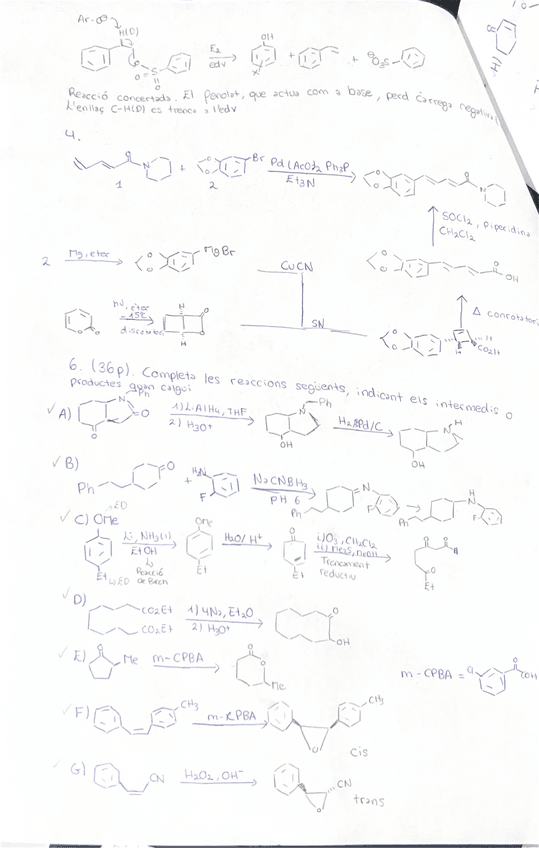 Ar-O⊖ H(D)
E2
edv
OH
X
+ + ⊖O3S
O=S
O
Reacció concertada. El penolat, que actua com a base, perd càrrega negativa
L'enllaç C-H(D) es trenca a l'edv
4.
1 + 2 Br Pd(AcO)2 Ph3P
Et3N
SOCl2, Piperidina
CH2Cl2
2 Mg, eter MgBr
CuCN
OH
hν, eter
-15°C
SN
Δ conrotatori
CO2H
6. (36p). Completa les reaccions següents, indicant els intermedis o
productes quan calgui
A) Ph 1) LiAlH4, THF
2) H3O+
OH
Ph H2, Pd/C
H
OH
B) Ph + H2N F NaCNBH3
pH 6
Ph N F Ph H N F
C) OMe ED
Et ED
Li, NH3(l)
EtOH
Reacció
de Birch
OMe
Et
H2O/H+
O
Et
i) O3, CH2Cl2
Trencament
reductiu
Et
D) CO2Et
CO2Et
1) 4Na, Et2O
2) H3O+
O
OH
E) Me m-CPBA Me
m-CPBA = Cl CO3H
F) CH3 m-CPBA CH3
cis
G) CN H2O2, OH- CN
trans